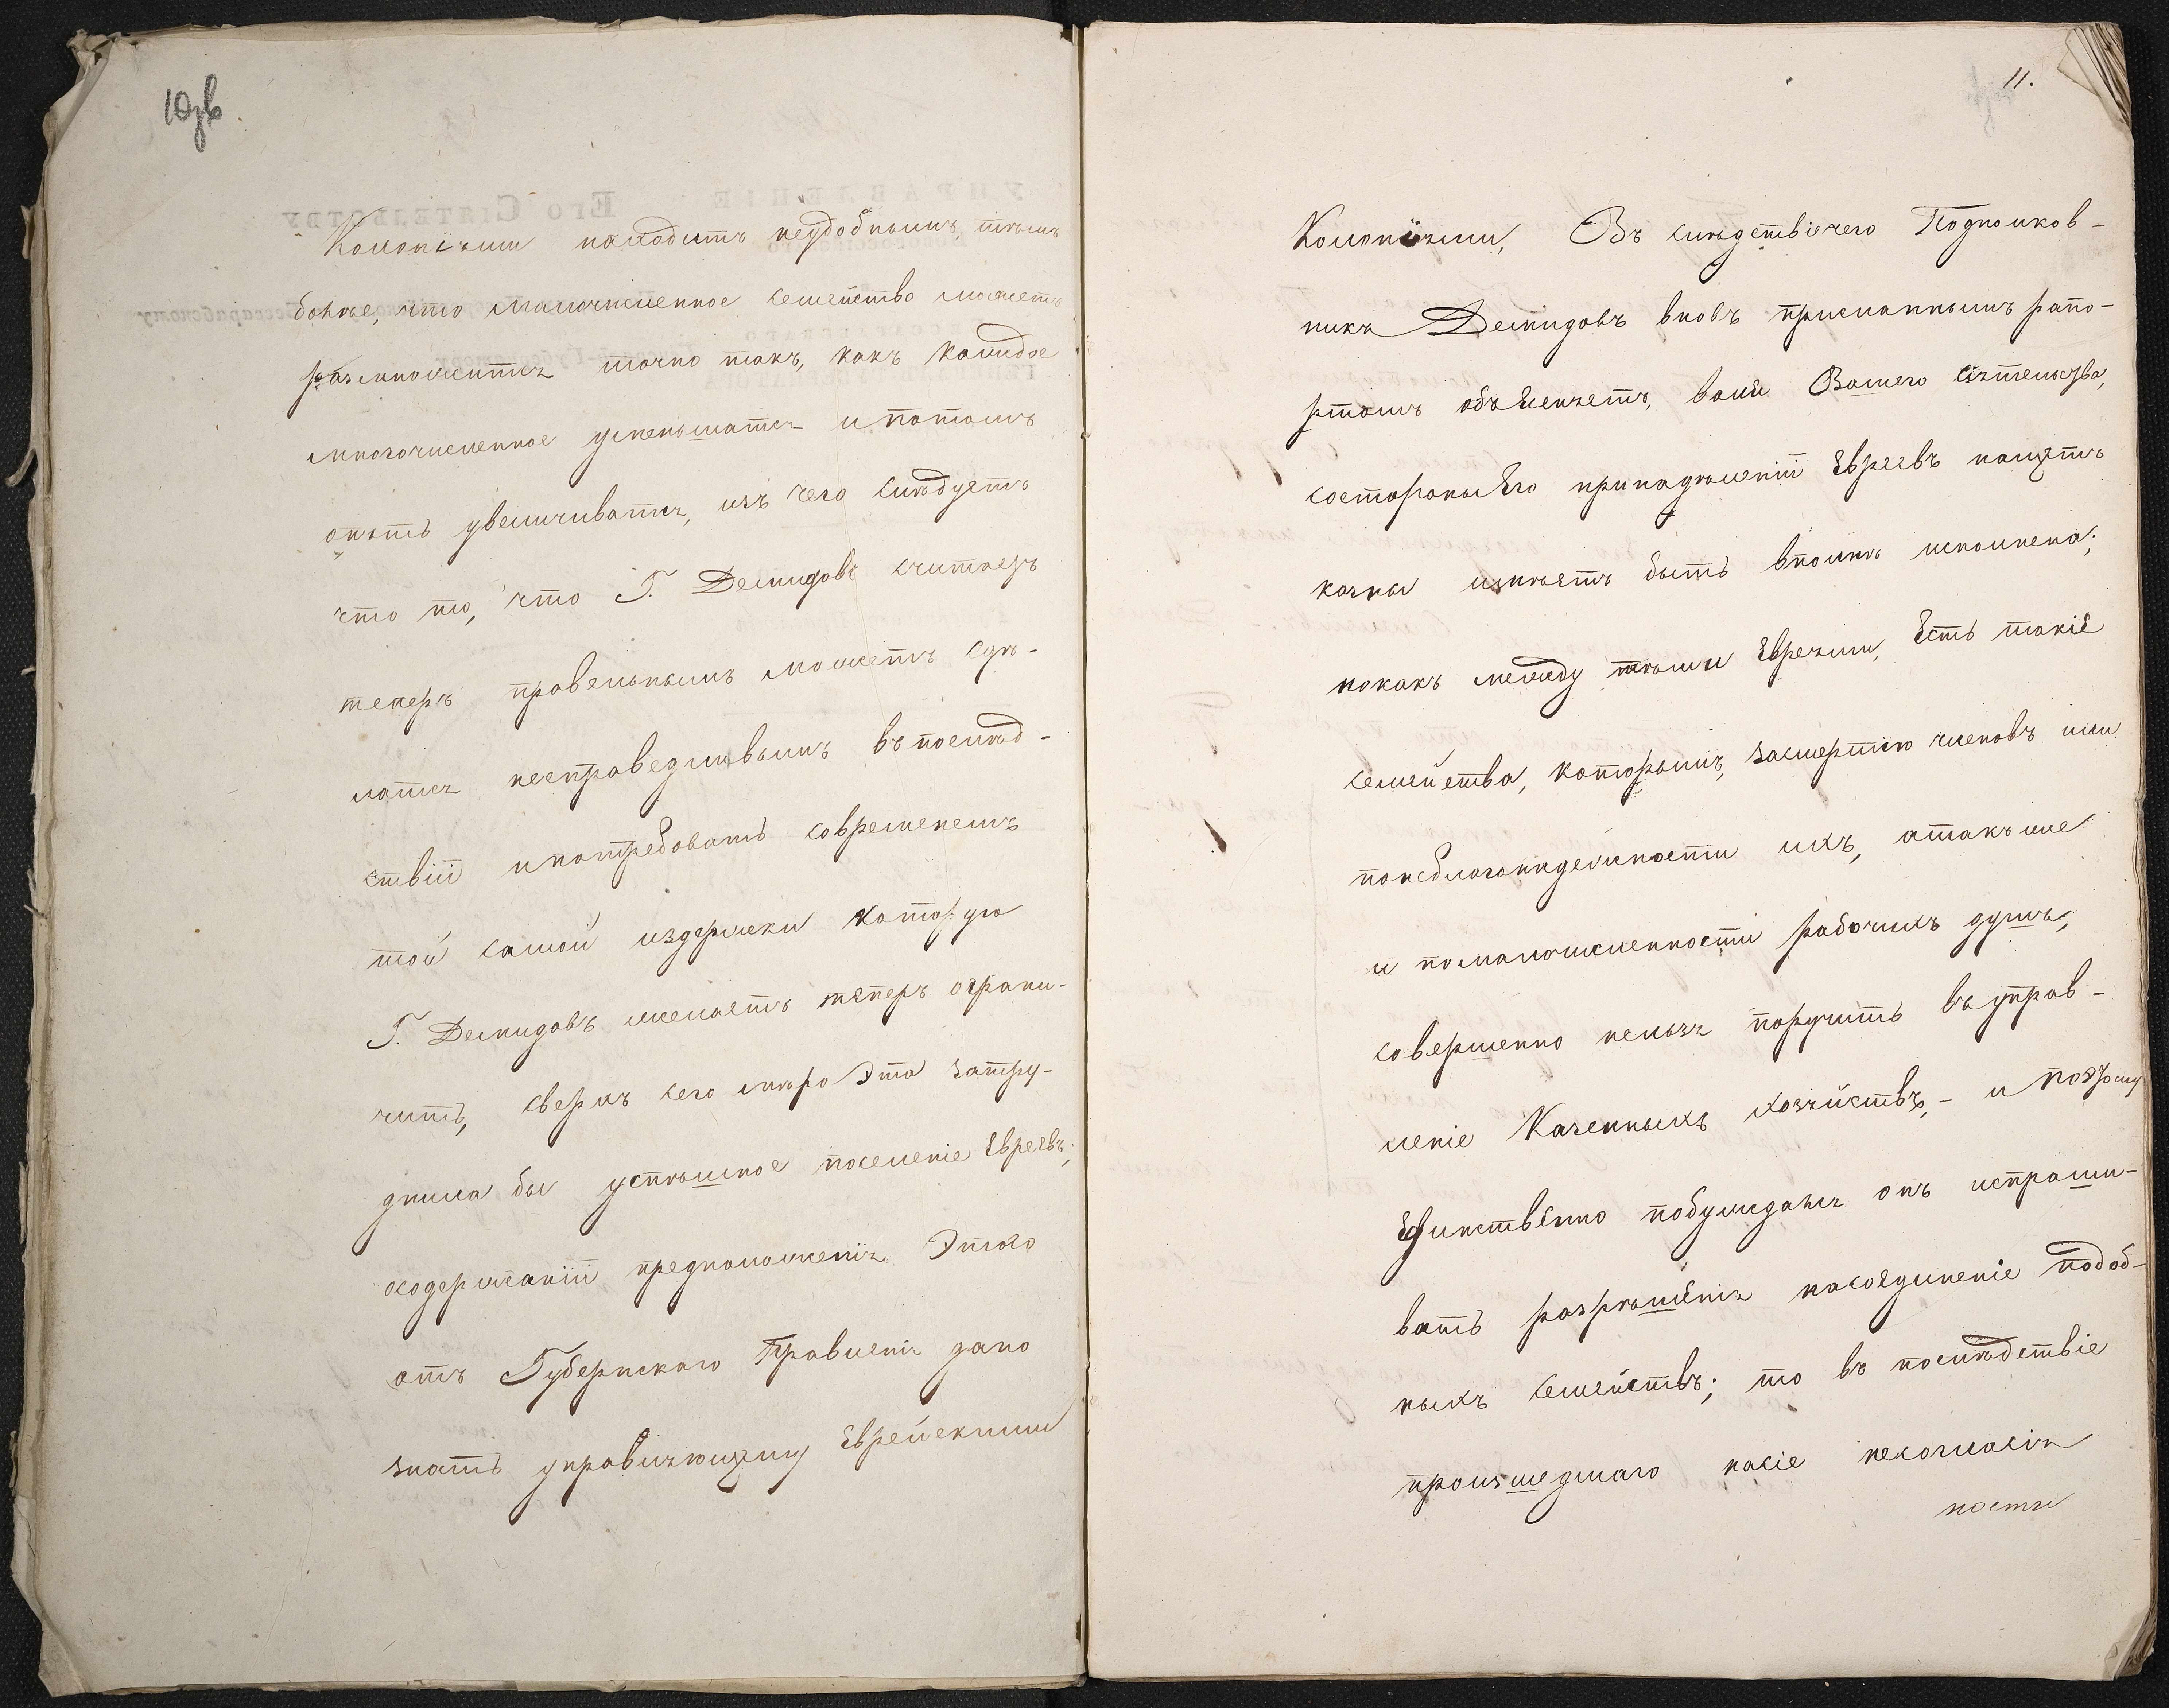 10зв
Колоніями находитъ неудобнымъ, тѣмъ
болѣе, что малочисленное семейство можетъ
размножится точно такъ, какъ каждое
многочисленное уменьшатся и потомъ
опять увеличиватся, изъ чего слѣдуетъ
что то, что Г. Демидовъ считаетъ
теперь правильнымъ можетъ сдѣ-
латся несправедливымъ въ послѣд-
ствіи и потребовать современемъ
той самой издержки которую
Г. Демидовъ желаетъ теперь ограни-
чить, сверхъ сего мѣра эта затру-
днила бы успѣшное поселеніе Евреевъ;
о содержаніи предположенія этаго
отъ Губернскаго Правленія дано
знать управляющему Еврейскими
11.
Колоніями, Въ слѣдствіе чего Подполков-
никъ Демидовъ вновъ присланнымъ рапо-
ртомъ объясняетъ, воля Вашего Сіятельства,
состороны его принадѣленіи Евреевъ нащетъ
казны имѣетъ быть вполнѣ исполнена;
но какъ между тѣми Евреями, есть такіе
семейства, которымъ, засмертію членовъ или
понеблагонадежности ихъ, атакъже
и помалочисленности рабочихъ душъ,
совершенно нельзя поручить въ управ-
леніе Казенныхъ хозяйствъ, - и поэтому
Единственно побуждался онъ испраши-
вать разрѣшенія насоединеніе подоб-
ныхъ семействъ; то въ послѣдствіе
произшедшаго на сіе несогласія